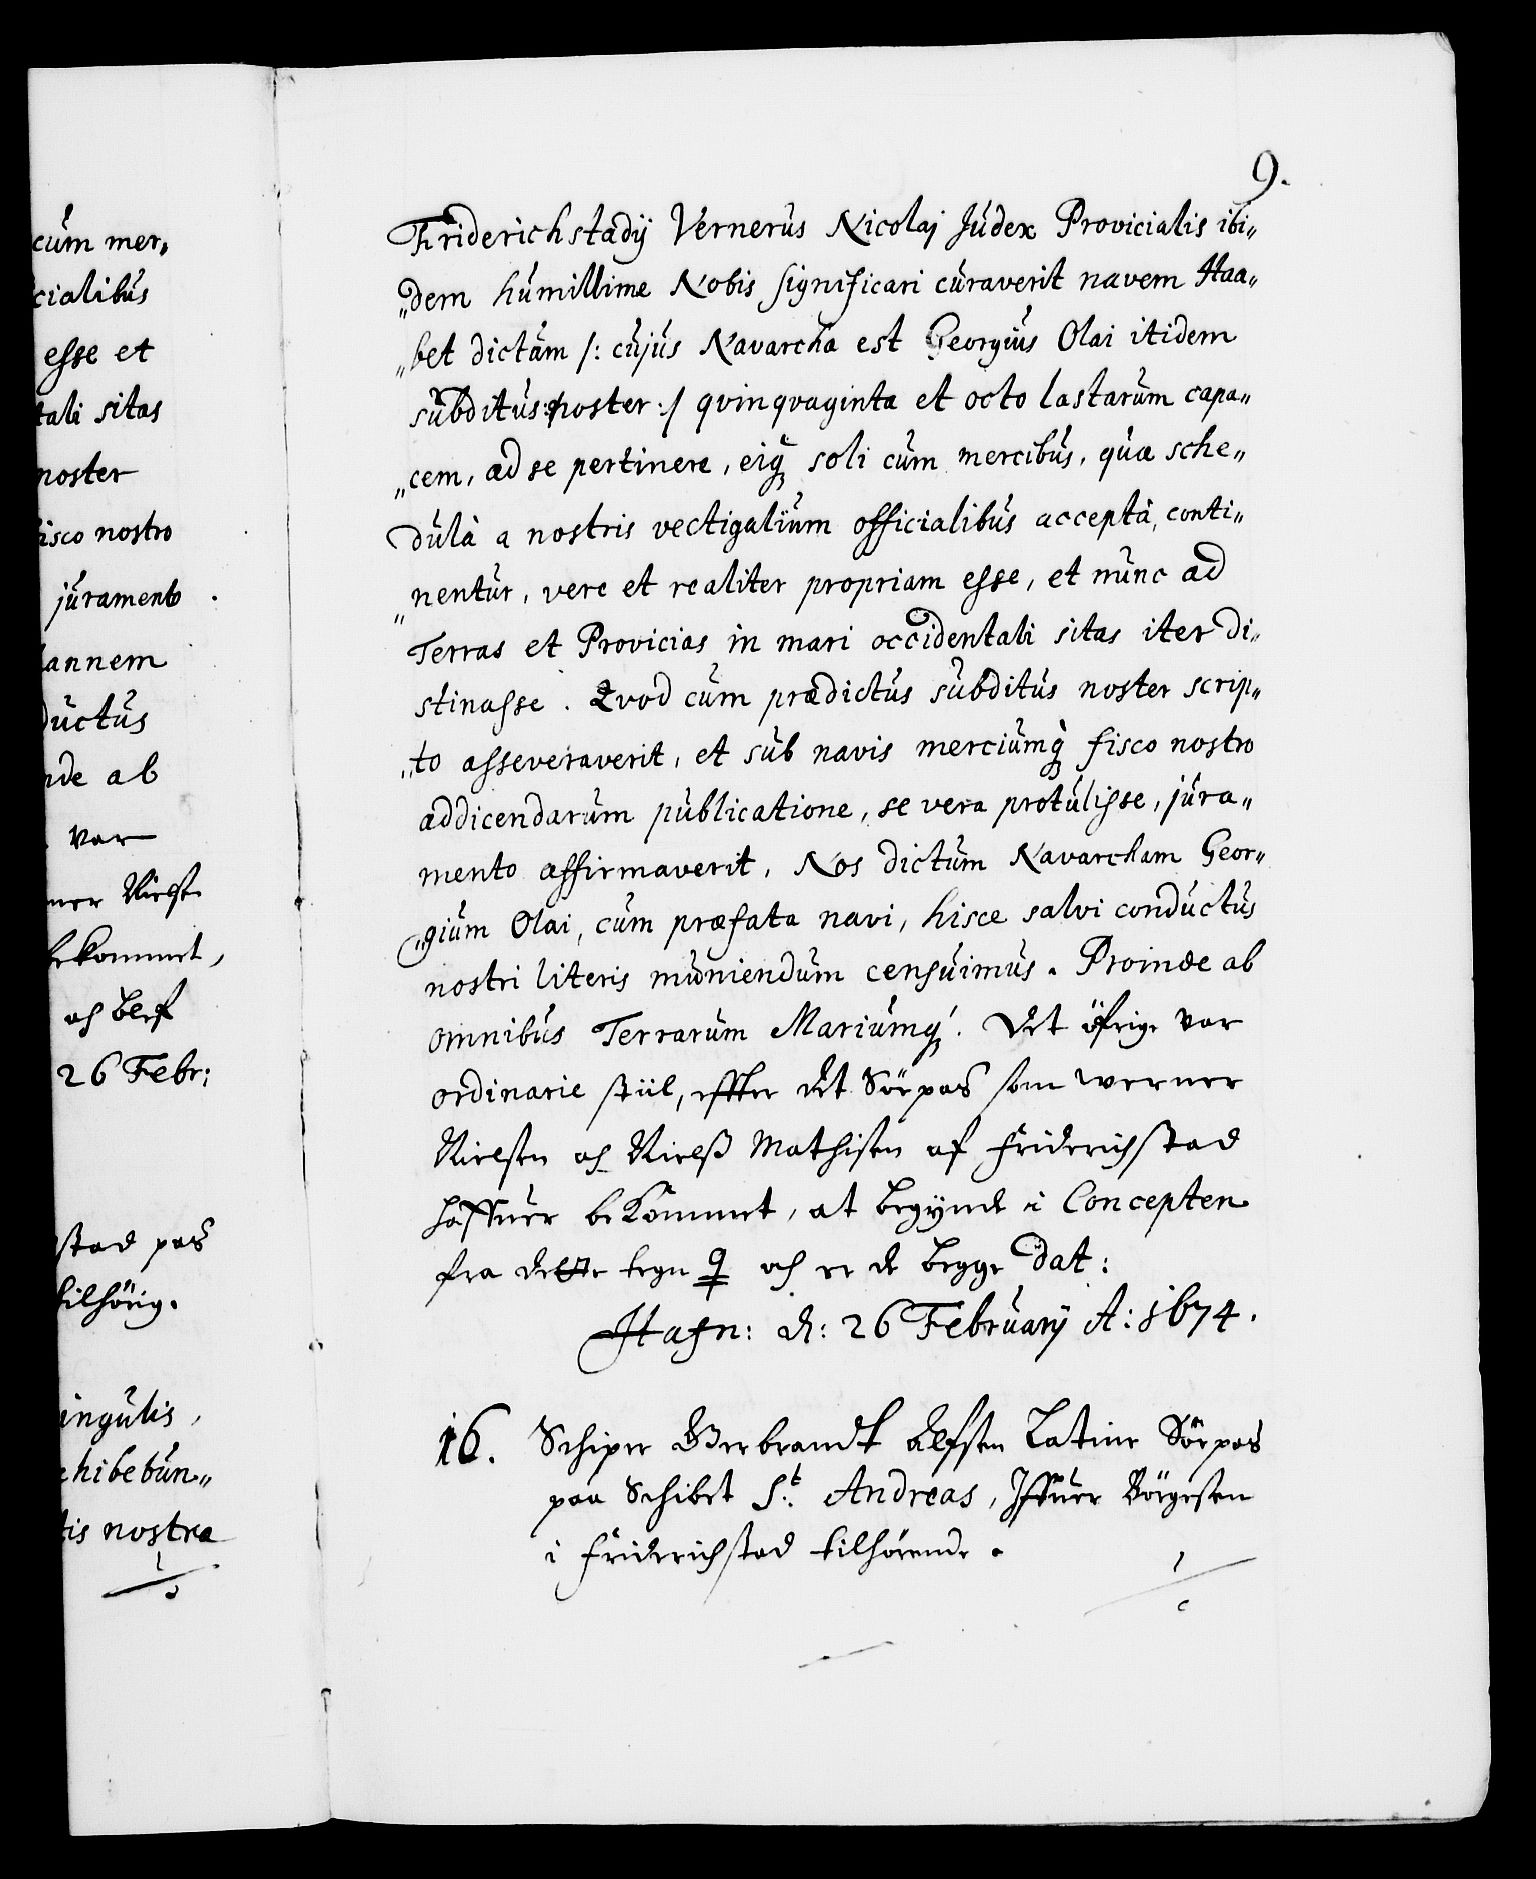 cum mer„
cialibus
esse et
tali sitas
noster
isco nostro
juramento
annem
ductus
nde ab
var
ner Nielsen
bekommet,
och blef
26 Febr:
stad pas
tilhörig.
ingulis,
hibebun„
tis nostra
9.
Friderichstadij Vernerus Nicolaj Judex Provicialis ibi„
„dem humillime Nobis significari curaverit navem Haa„
„bet dictam /: cujus Navarcha est Georgius Olai itidem
subditus noster :/ qvinqvaginta et octo lastarum capa„
„cem, ad se pertinere, eiq soli cum mercibus, quæ sche„
dulà a nostris vectigalium officialibus acceptà, conti„
„nentur, vere et realiter propriam esse, et nunc ad
Terras et Provicias in mari occidentali sitas iter di„
stinasse. Qvod cum prædictus subditus noster scrip„
„to asseveraverit, et sub navis merciumq fisco nostro
addicendarum publicatione, se vera protulisse, jura„
mento affirmaverit, Nos dictum Navarcham Geor„
„gium Olai, cum præfata navi, hisce salvi conductus
nostri literis muniendum censuimus. Proinde ab
omnibus Terrarum Mariumq. Det öfrige var
ordinarie stiil, effter det Söepas som werner
Nielsen och Nielß Mathisen af Friderichstad
haffuer bekommet, at begynde i Concepten
fra dette tegn 9 och er de begge Dat:
Hafn: d: 26 Februarij A: 1674.
16. Schiper Gerbrandt Alfsen Latine Söepas
paa Schibet St: Andreas, Iffuer Börgesen
i Friderichstad tilhörende.